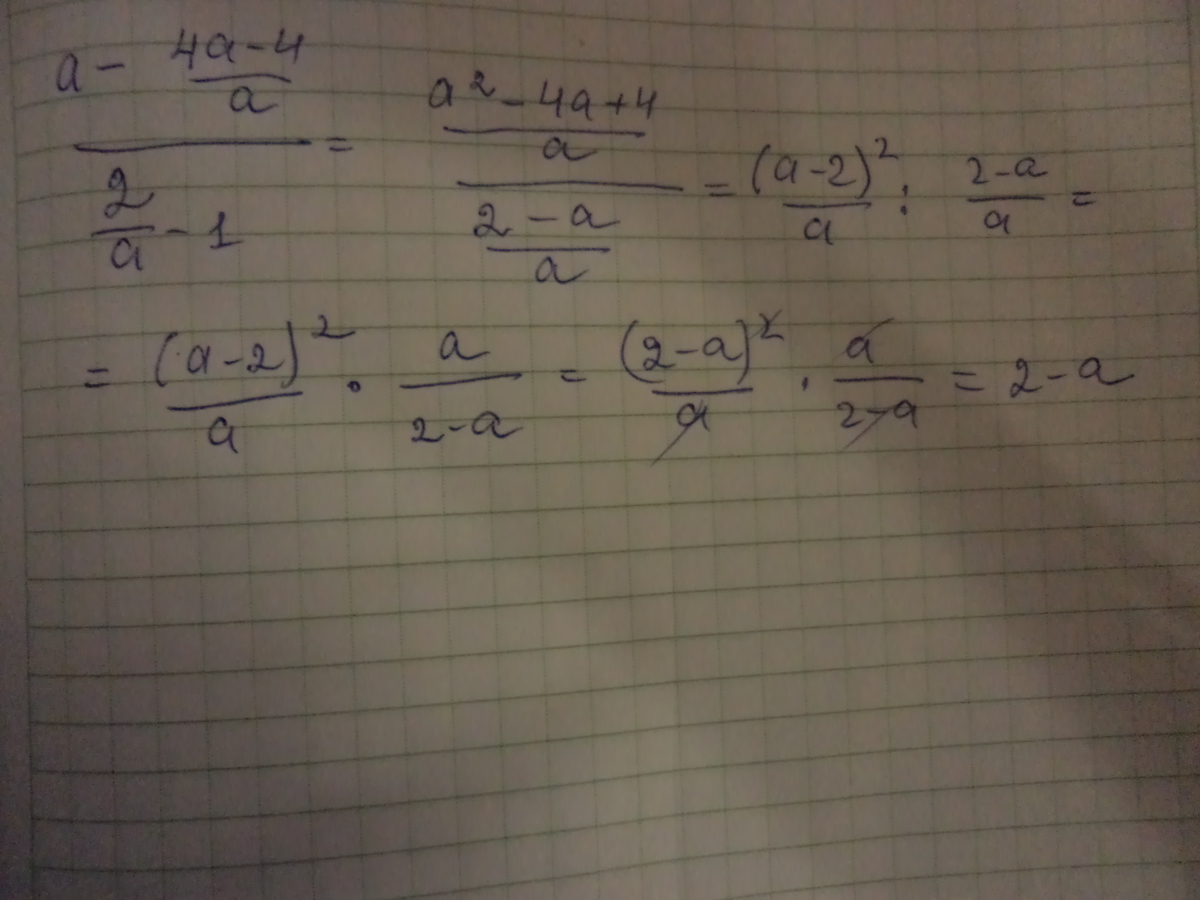 (a - (4a-4)/a)/(2/a - 1) = ((a² - 4a + 4)/a)/((2 - a)/a) = (a-2)²/a : (2-a)/a =
= (a-2)²/a · a/(2-a) = (2-a)²/a · a/(2-a) = 2-a